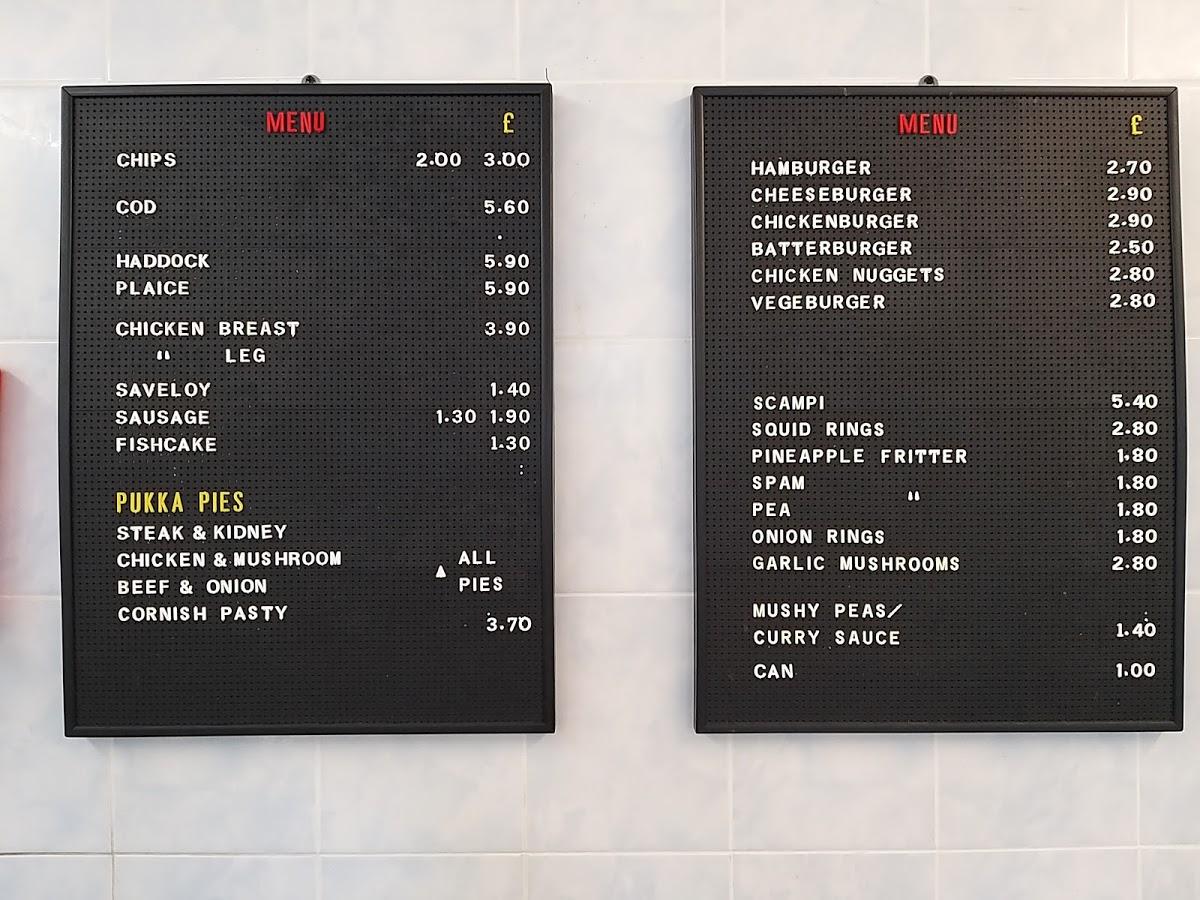 MENU £
CHIPS 2.00 3.00
COD 5.60
HADDOCK 5.90
PLAICE 5.90
CHICKEN BREAST 3.90
" LEG
SAVELOY 1.40
SAUSAGE 1.30 1.90
FISHCAKE 1.30
PUKKA PIES
STEAK & KIDNEY
CHICKEN & MUSHROOM ALL
BEEF & ONION PIES
CORNISH PASTY
3.70
MENU £
HAMBURGER 2.70
CHEESEBURGER 2.90
CHICKENBURGER 2.90
BATTERBURGER 2.50
CHICKEN NUGGETS 2.80
VEGEBURGER 2.80
SCAMPI 5.40
SQUID RINGS 2.80
PINEAPPLE FRITTER 1.80
SPAM " 1.80
PEA 1.80
ONION RINGS 1.80
GARLIC MUSHROOMS 2.80
MUSHY PEAS/
CURRY SAUCE 1.40
CAN 1.00